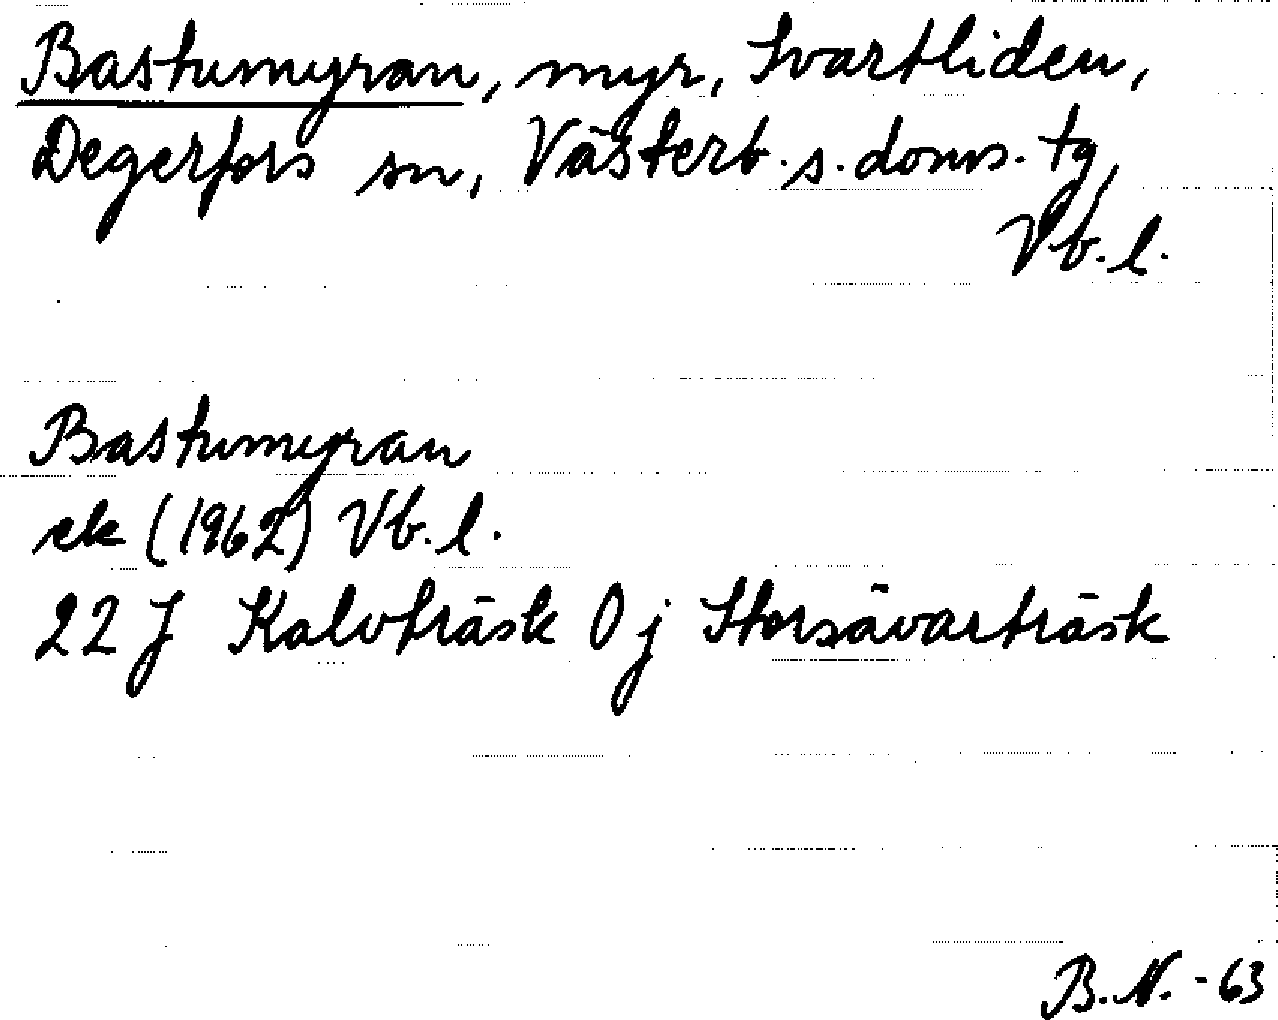 Bastumyran, myr, Svartliden,
Degerfors sn, Västerb. s. doms. tg,
Vb. l.
Bastumyran
ek (1962) Vb. l.
22 J Kalvträsk 0 j Storsävarträsk
B. N. - 63